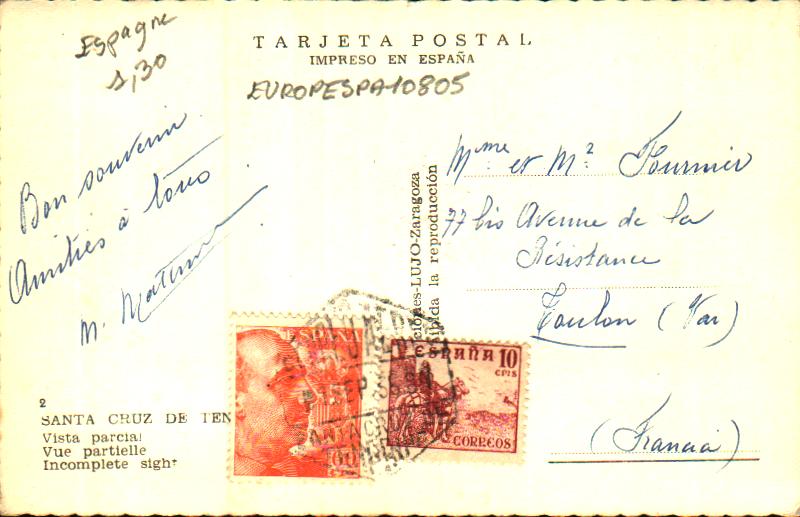 Espagne
1,30
TARJETA POSTAL
IMPRESO EN ESPAÑA
EUROPESPA10805
Bon souvenir
Amitiés à tous
M.
Mme et Mr Fournier
77 bis Avenue de la
Résistance
Toulon (Var)
(Francia)
ciones-LUJO-Zaragoza
ibida la reproducción
ESPAÑA
ESPAÑA 10
CTS
CORREOS
SEP
2
SANTA CRUZ DE TEN
Vista parcial
Vue partielle
Incomplete sight